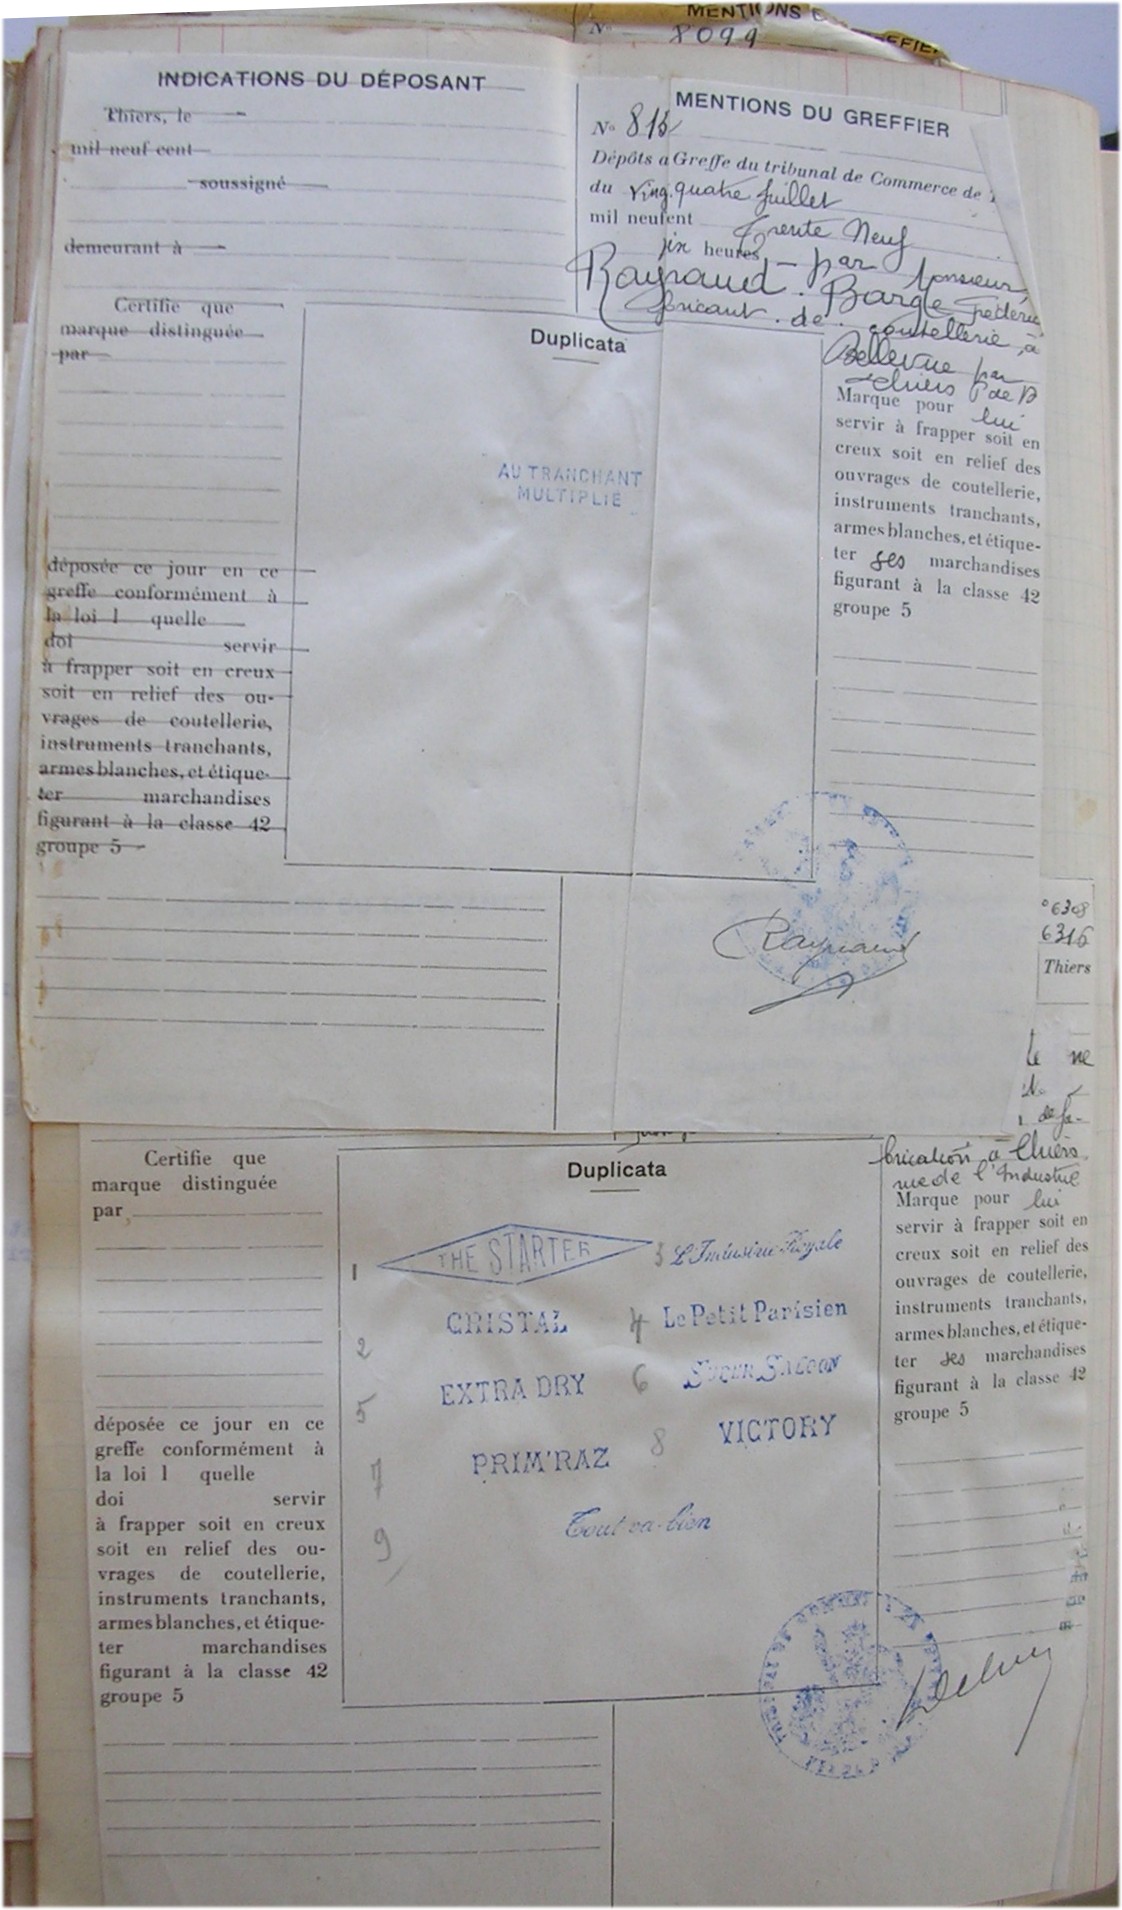 MENTIONS
Nº 8099
INDICATIONS DU DÉPOSANT
Thiers, le
mil neuf cent
soussigné
demeurant à
Certifie que
marque distinguée
par
déposée ce jour en ce
greffe conformément à
la loi l quelle
doi servir
à frapper soit en creux
soit en relief des ou-
vrages de coutellerie,
instruments tranchants,
armes blanches, et étique-
ter marchandises
figurant à la classe 42
groupe 5
MENTIONS DU GREFFIER
Nº
Dépôts a Greffe du tribunal de Commerce de
du Vingt quatre Juillet
mil neufcent Trente Neuf
heures par Monsieur
Raynaud Barge Frédéric
fabricant de coutellerie, à
Bellevue par
Thiers P de D
Marque pour lui
servir à frapper soit en
creux soit en relief des
ouvrages de coutellerie,
instruments tranchants,
armes blanches, et étique-
ter ses marchandises
figurant à la classe 42
groupe 5
Duplicata
AU TRANCHANT
MULTIPLIE
Raynaud
6308
6316
Thiers
Certifie que
marque distinguée
par
déposée ce jour en ce
greffe conformément à
la loi l quelle
doi servir
à frapper soit en creux
soit en relief des ou-
vrages de coutellerie,
instruments tranchants,
armes blanches, et étique-
ter marchandises
figurant à la classe 42
groupe 5
Duplicata
1 THE STARTER
3 L'Industrie Royale
2 CRISTAL
4 Le Petit Parisien
5 EXTRA DRY
6 SUPER SALOON
7 PRIM'RAZ
8 VICTORY
9 Tout va-bien
de fa-
brication à Thiers
rue de l'Industrie
Marque pour lui
servir à frapper soit en
creux soit en relief des
ouvrages de coutellerie,
instruments tranchants,
armes blanches, et étique-
ter ses marchandises
figurant à la classe 42
groupe 5